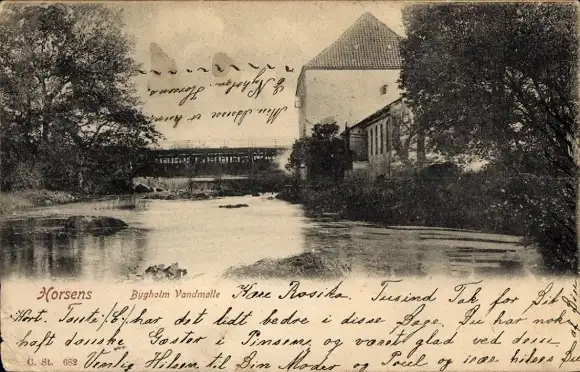 Min Adresse er kun
E Nyholm. Horsens
Horsens Bygholm Vandmølle
Kære Rosika. Tusind Tak for Dit
Kort. Tante har det lidt bedre i disse Dage. Du har nok
haft danske Gæster i Pinsen, og været glad ved disse
Venlig Hilsen til Din Moder og Poul og især hilses Du
C. St. 682